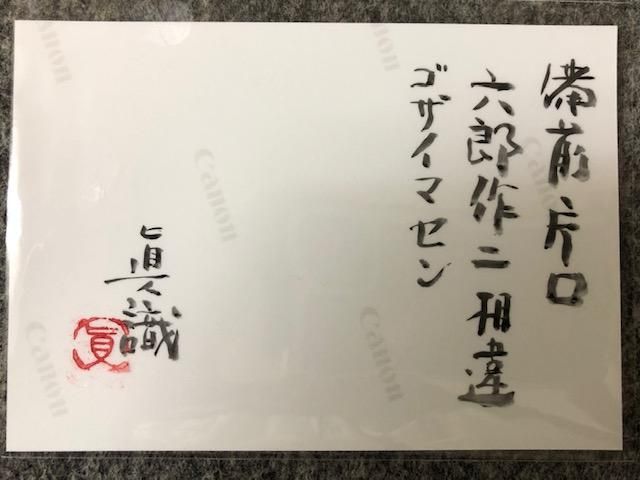 備前片口
六郎作ニ相違
ゴザイマセン
眞識
眞
Canon
Canon
Canon
Canon
Canon
Canon